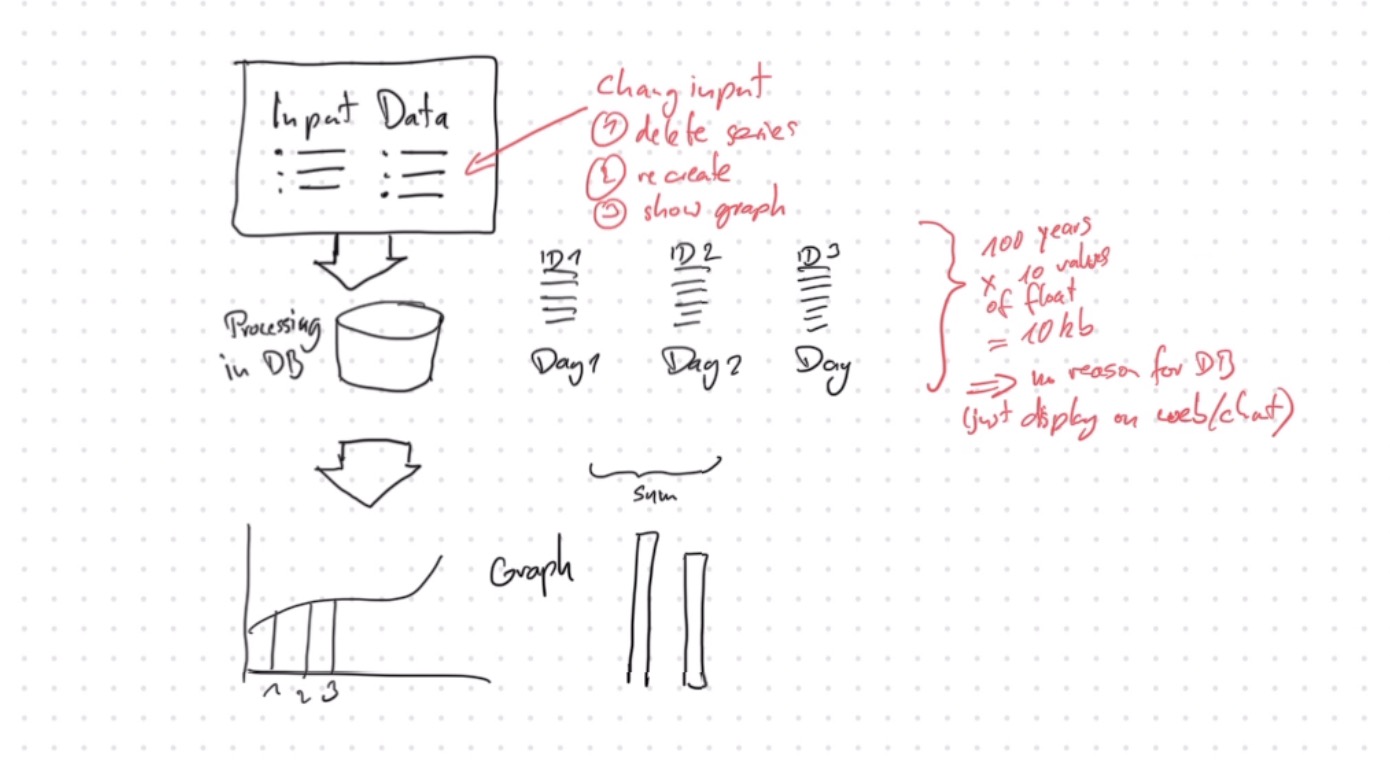 Input Data
Chang input
① delete series
② recreate
③ show graph
ID1
ID2
ID3
Processing
in DB
Day1
Day2
Day
100 years
x 10 values
of float
= 10kb
=> no reason for DB
(just display on web/chat)
sum
Graph
1 2 3